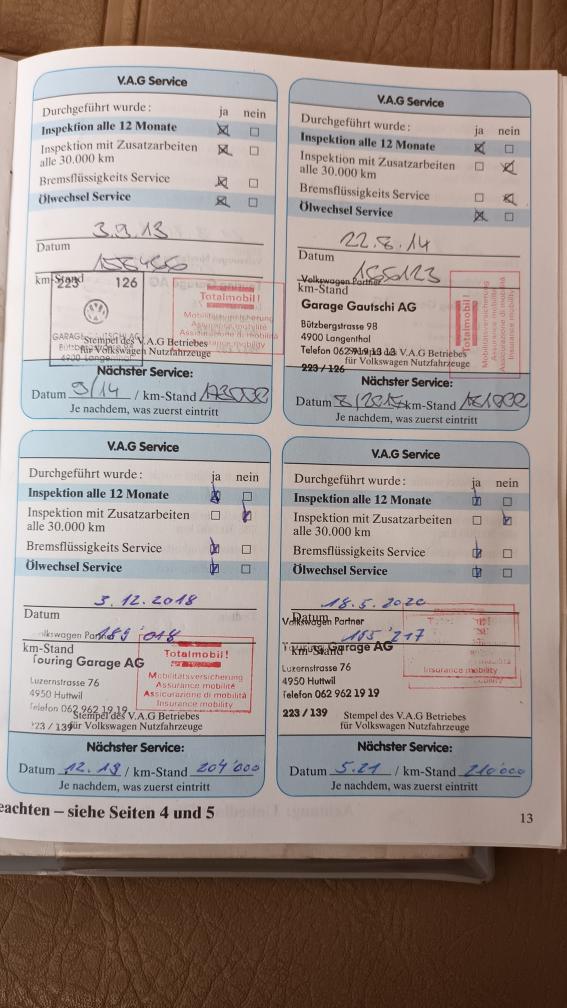 V.A.G Service
Durchgeführt wurde: ja nein
Inspektion alle 12 Monate
Inspektion mit Zusatzarbeiten
alle 30.000 km
Bremsflüssigkeits Service
Ölwechsel Service
3.9.13
Datum
km-Stand
223 126
Totalmobil!
Mobilitätsversicherung
Assurance mobilité
Assicurazione di mobilità
Insurance mobility
Stempel des V.A.G Betriebes
für Volkswagen Nutzfahrzeuge
4900 Langenthal
Nächster Service:
Datum 9/14 / km-Stand
Je nachdem, was zuerst eintritt
V.A.G Service
Durchgeführt wurde: ja nein
Inspektion alle 12 Monate
Inspektion mit Zusatzarbeiten
alle 30.000 km
Bremsflüssigkeits Service
Ölwechsel Service
22.8.14
Datum
Volkswagen Partner
km-Stand
Garage Gautschi AG
Bützbergstrasse 98
4900 Langenthal
Telefon 062 919 13 13
V.A.G Betriebes
für Volkswagen Nutzfahrzeuge
223 / 126
Totalmobil!
Mobilitätsversicherung
Assurance mobilité
Assicurazione di mobilità
Insurance mobility
Nächster Service:
Datum 8/2015 km-Stand
Je nachdem, was zuerst eintritt
V.A.G Service
Durchgeführt wurde: ja nein
Inspektion alle 12 Monate
Inspektion mit Zusatzarbeiten
alle 30.000 km
Bremsflüssigkeits Service
Ölwechsel Service
3.12.2018
Datum
Volkswagen Partner 189'018
km-Stand
Touring Garage AG
Luzernstrasse 76
4950 Huttwil
Telefon 062 962 19 19
Stempel des V.A.G Betriebes
223 / 139 für Volkswagen Nutzfahrzeuge
Totalmobil!
Mobilitätsversicherung
Assurance mobilité
Assicurazione di mobilità
Insurance mobility
Nächster Service:
Datum 12.19 / km-Stand 204'000
Je nachdem, was zuerst eintritt
V.A.G Service
Durchgeführt wurde: ja nein
Inspektion alle 12 Monate
Inspektion mit Zusatzarbeiten
alle 30.000 km
Bremsflüssigkeits Service
Ölwechsel Service
18.5.2020
Datum
Volkswagen Partner
km-Stand
Touring Garage AG
Luzernstrasse 76
4950 Huttwil
Telefon 062 962 19 19
Insurance mobility
223 / 139 Stempel des V.A.G Betriebes
für Volkswagen Nutzfahrzeuge
Nächster Service:
Datum 5.21 / km-Stand 210'000
Je nachdem, was zuerst eintritt
eachten – siehe Seiten 4 und 5
13